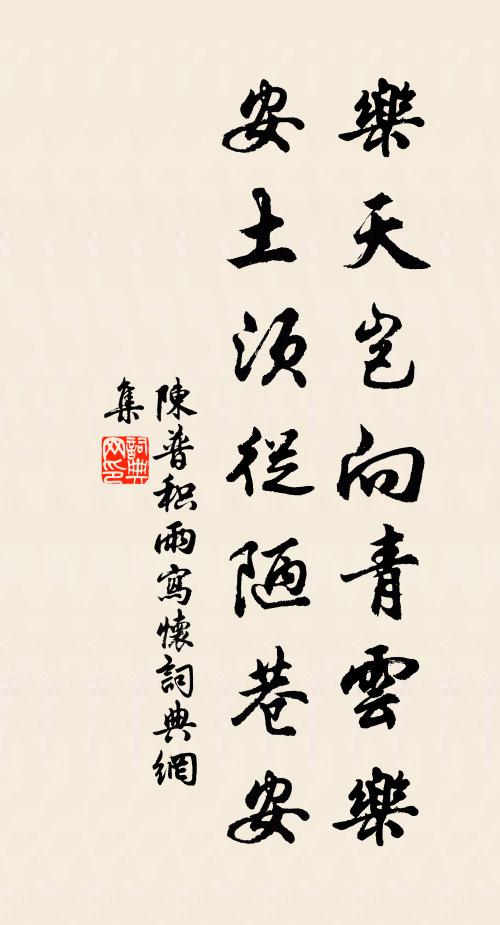 樂天豈向青雲樂
安土須從陋巷安
陳普积雨寫懷詞典網
集
詞典
网印